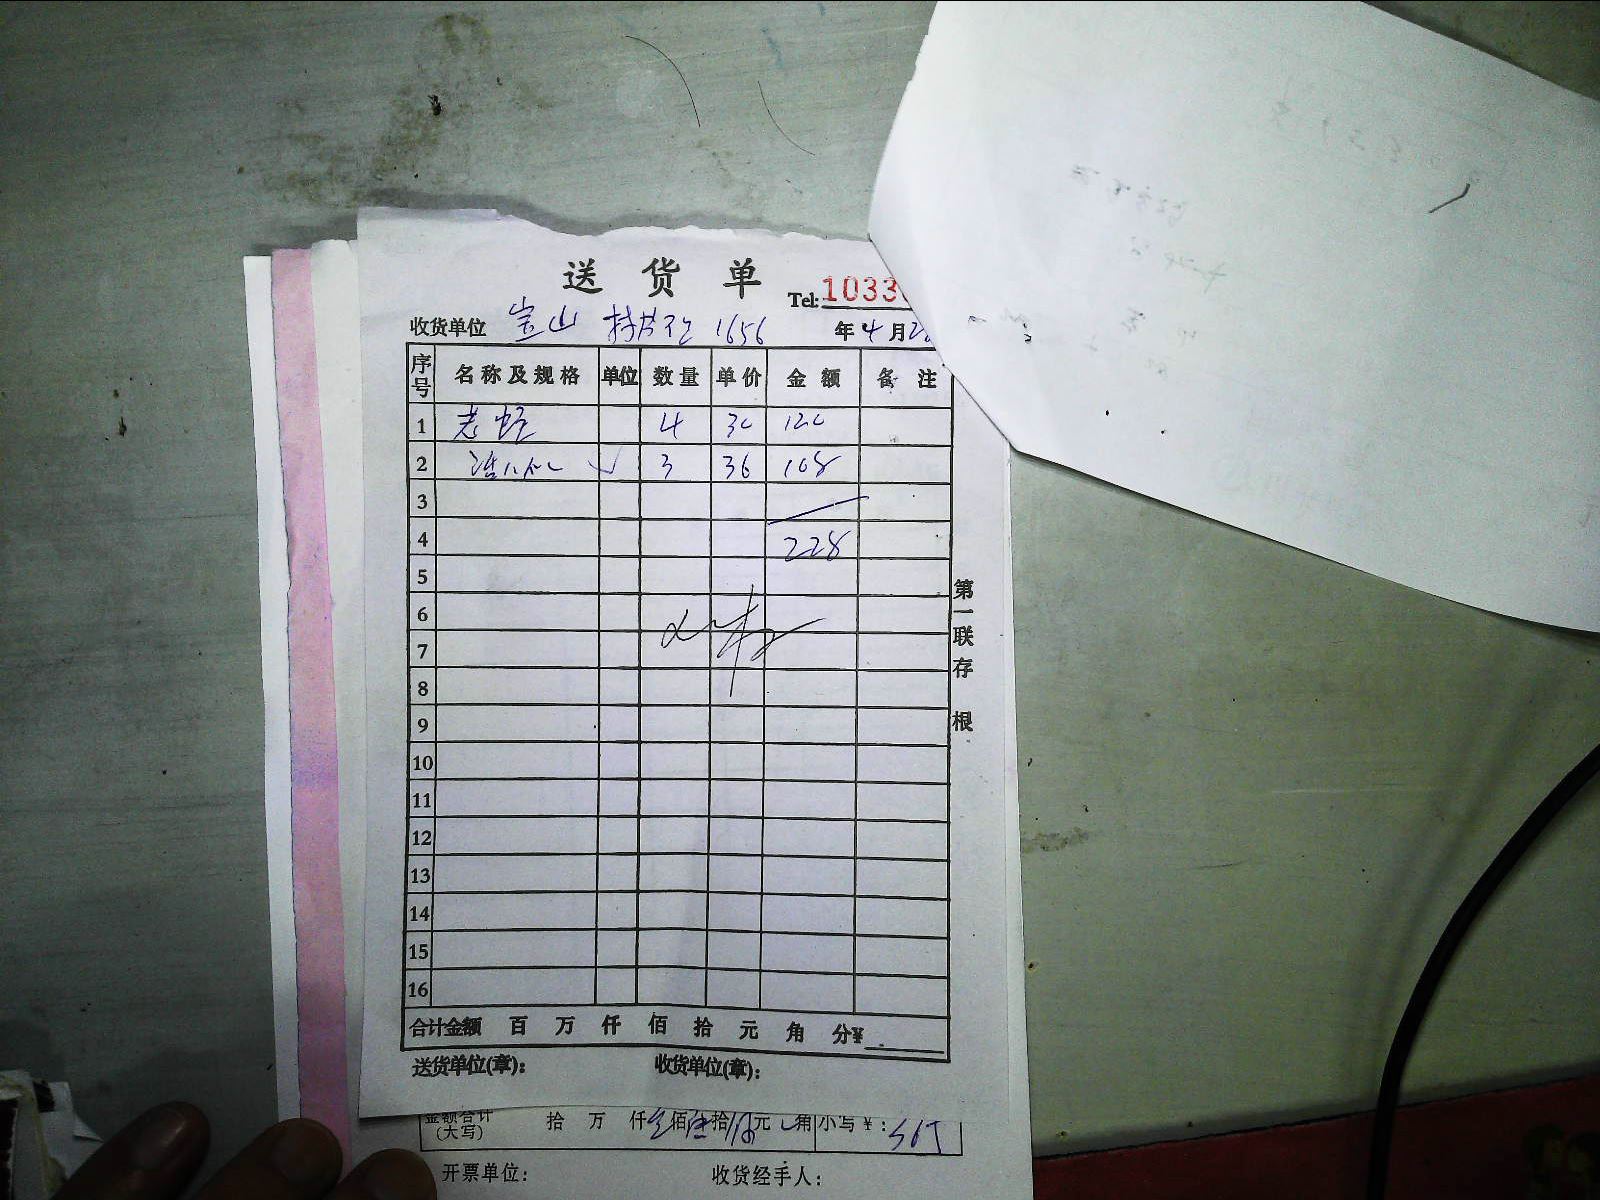 送货单
Tel: 1033
收货单位 宝山 1656 年 4 月 2
序号 名称及规格 单位 数量 单价 金额 备注
1 老 4 30 120
2 3 36 108
3
4 228
5
6
7
8
9
10
11
12
13
14
15
16
合计金额 百 万 仟 佰 拾 元 角 分¥
送货单位(章): 收货单位(章):
第一联存根
金额合计(大写) 拾 万 仟 佰 拾 元 角 小写¥:
开票单位: 收货经手人: